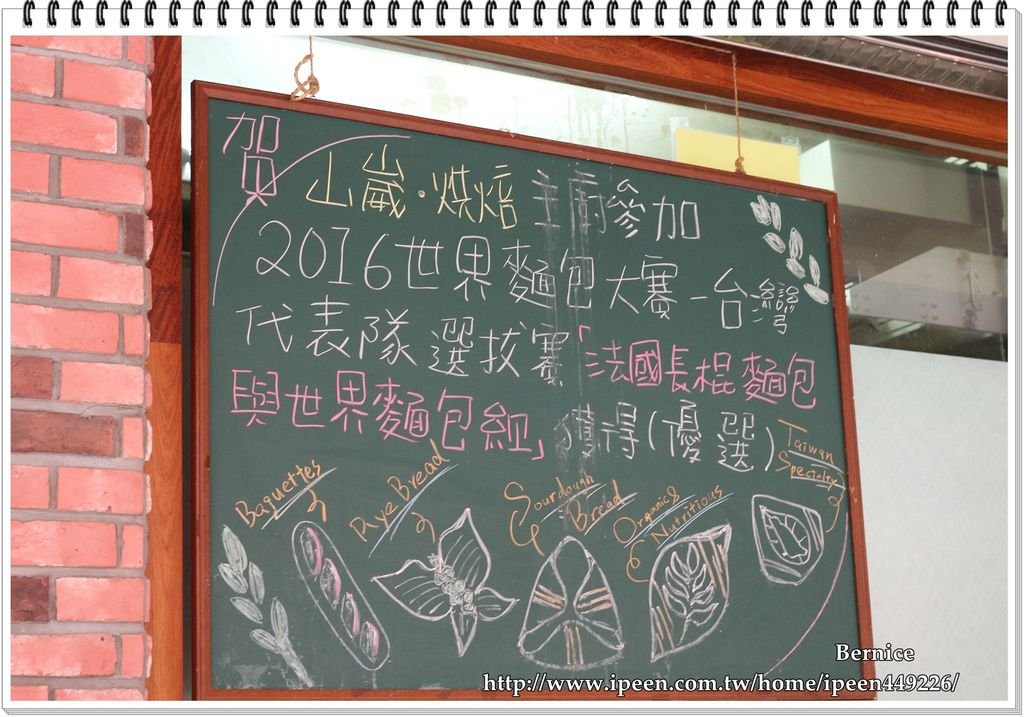 賀
山崴·烘焙 主廚參加
2016世界麵包大賽-台灣
代表隊選拔賽「法國長棍麵包
與世界麵包組」獲得(優選)
Taiwan
Specialty
Baguettes
Rye Bread
Sourdough
Bread
Organic &
Nutritious
Bernice
http://www.ipeen.com.tw/home/ipeen449226/